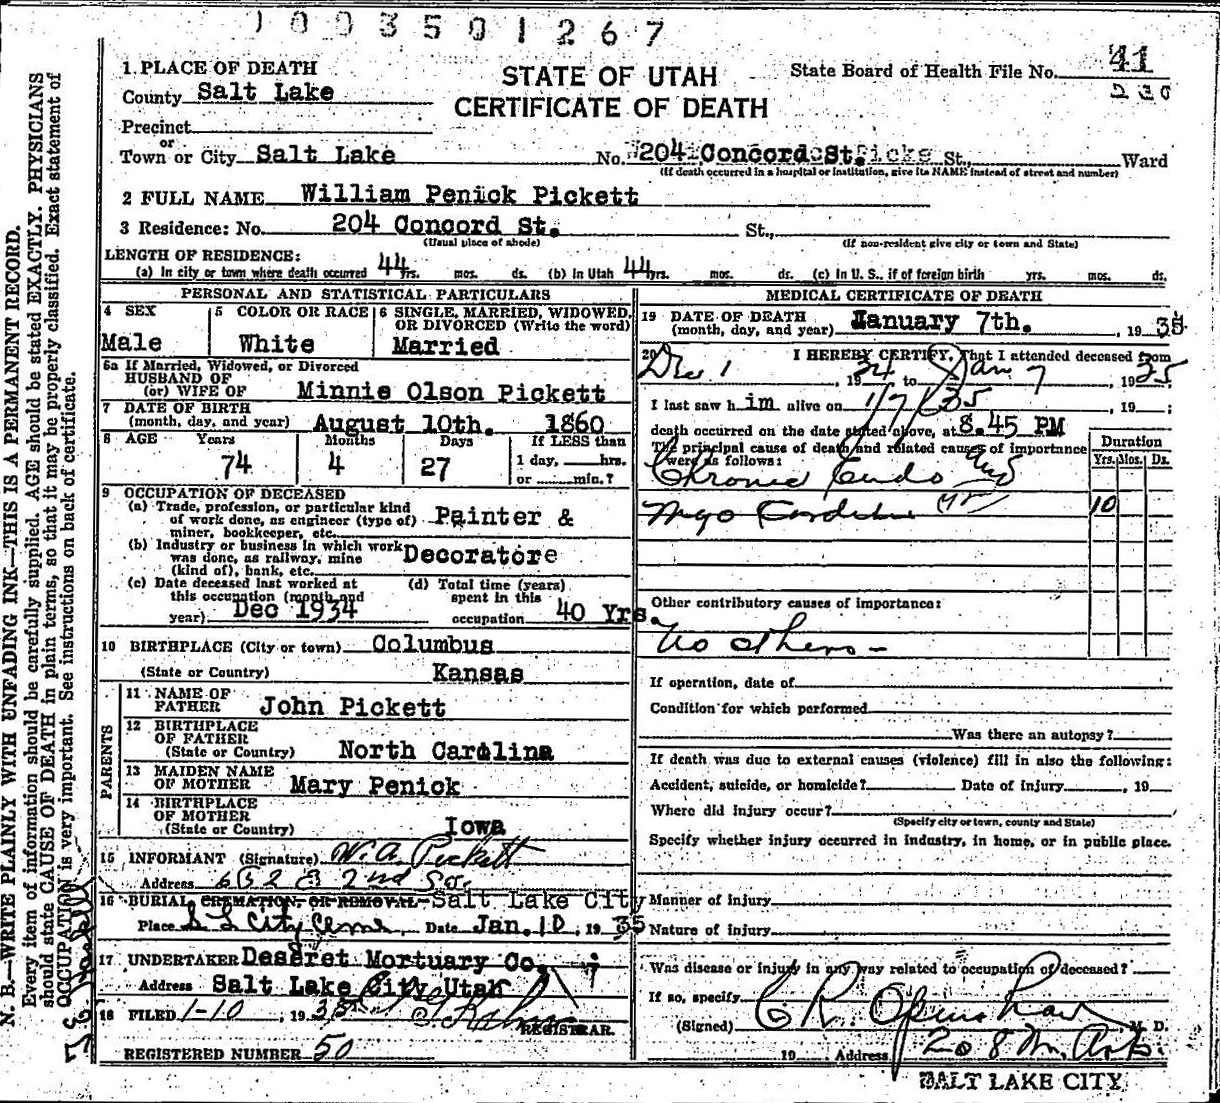 1003501267
1 PLACE OF DEATH
STATE OF UTAH
CERTIFICATE OF DEATH
State Board of Health File No. 41
230
County Salt Lake
Precinct
or
Town or City Salt Lake No. 204 Concord St. St., Ward
(If death occurred in a hospital or institution, give its NAME instead of street and number)
2 FULL NAME William Penick Pickett
3 Residence: No. 204 Concord St. St.,
(Usual place of abode) (If non-resident give city or town and State)
LENGTH OF RESIDENCE:
(a) In city or town where death occurred 44 yrs. mos. ds. (b) In Utah 44 yrs. mos. ds. (c) In U. S., if of foreign birth yrs. mos. ds.
PERSONAL AND STATISTICAL PARTICULARS
4 SEX
Male
5 COLOR OR RACE
White
6 SINGLE, MARRIED, WIDOWED,
OR DIVORCED (Write the word)
Married
6a If Married, Widowed, or Divorced
HUSBAND OF
(or) WIFE OF Minnie Olson Pickett
7 DATE OF BIRTH
(month, day, and year) August 10th. 1860
8 AGE Years Months Days If LESS than
74 4 27 1 day, hrs.
or min.?
9 OCCUPATION OF DECEASED
(a) Trade, profession, or particular kind
of work done, as engineer (type of) Painter &
miner, bookkeeper, etc.
(b) Industry or business in which work
was done, as railway, mine Decoratore
(kind of), bank, etc.
(c) Date deceased last worked at (d) Total time (years)
this occupation (month and spent in this
year) Dec 1934 occupation 40 Yrs.
10 BIRTHPLACE (City or town) Columbus
(State or Country) Kansas
PARENTS
11 NAME OF
FATHER John Pickett
12 BIRTHPLACE
OF FATHER
(State or Country) North Carolina
13 MAIDEN NAME
OF MOTHER Mary Penick
14 BIRTHPLACE
OF MOTHER
(State or Country) Iowa
15 INFORMANT (Signature) W. A. Pickett
Address 652 2nd So.
16 BURIAL CREMATION OR REMOVAL Salt Lake City
Place S L City Cem. Date Jan. 10, 1935
17 UNDERTAKER Deseret Mortuary Co.
Address Salt Lake City Utah
18 FILED 1-10, 1935
REGISTRAR.
REGISTERED NUMBER 50
MEDICAL CERTIFICATE OF DEATH
19 DATE OF DEATH
(month, day, and year) January 7th. 1935
20 I HEREBY CERTIFY, That I attended deceased from
Dec 1, 1934 to Jan 7, 1935
I last saw him alive on 1/7/35, 19 ;
death occurred on the date stated above, at 8.45 PM
The principal cause of death and related causes of importance
were as follows:
Duration
Yrs. Mos. Ds.
Chronic Endo and
Myo Carditis 10
Other contributory causes of importance:
No others -
If operation, date of
Condition for which performed
Was there an autopsy?
If death was due to external causes (violence) fill in also the following:
Accident, suicide, or homicide? Date of injury, 19
Where did injury occur?
(Specify city or town, county and State)
Specify whether injury occurred in industry, in home, or in public place.
Manner of injury
Nature of injury
Was disease or injury in any way related to occupation of deceased?
If so, specify
(Signed) M. D.
19 Address 208
SALT LAKE CITY
N. B.—WRITE PLAINLY WITH UNFADING INK—THIS IS A PERMANENT RECORD.
Every item of information should be carefully supplied. AGE should be stated EXACTLY. PHYSICIANS
should state CAUSE OF DEATH in plain terms, so that it may be properly classified. Exact statement of
OCCUPATION is very important. See instructions on back of certificate.